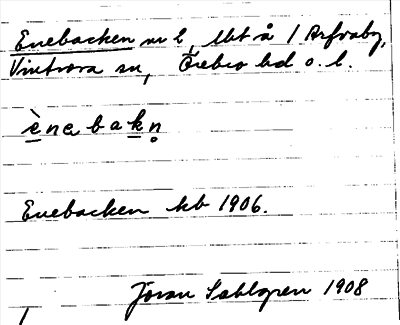 Enebacken nr 2, lht å 1 Arfvaby,
Vintrosa sn, Örebro hd o. l.
ènebakn̥
Enebacken kb 1906.
Jöran Sahlgren 1908
1